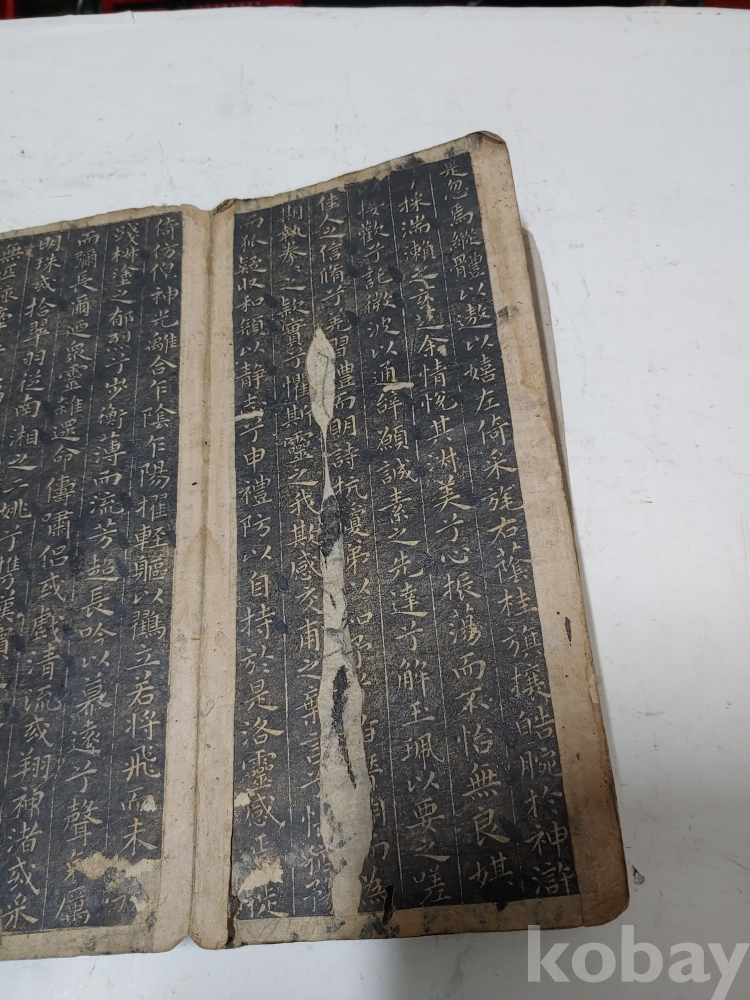 是忽焉縱體以遨以嬉左倚采旄右蔭桂旗攘皓腕於神滸
採湍瀨之玄芝余情悅其淑美兮心振蕩而不怡無良媒
接歡兮託微波以通辭願誠素之先達兮解玉珮以要之嗟
佳人之信脩兮羌習禮而明詩抗瓊珶以和為
期執拳之款實兮懼斯靈之我欺感交甫之棄言兮悵猶予
而狐疑收和顏以静志兮申禮防以自持於是洛靈感徙
倚仿偟神光離合乍陰乍陽擢輕軀以鶴立若將飛而未
踐椒塗之郁烈兮步衡薄而流芳超長吟以慕遠兮聲哀厲
而彌長爾迺衆靈雜遝命儔嘯侶或戲清流或翔神渚或采
明珠或拾翠羽從南湘之二姚兮攜漢濱
kobay